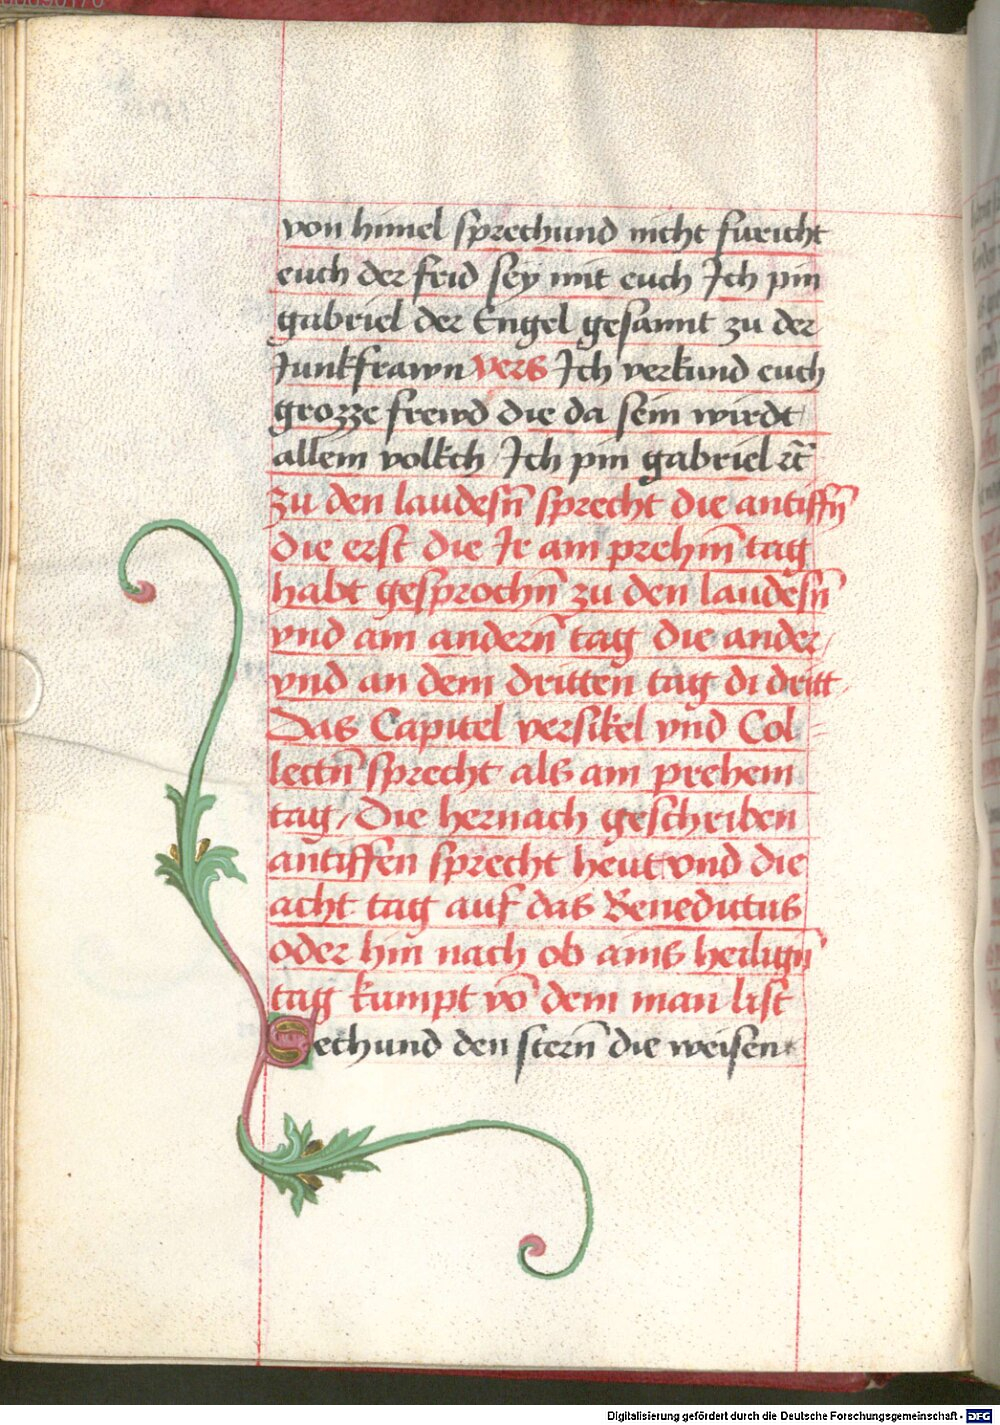 von himel sprechund nicht furicht
euch der frid sey mit euch Ich pin
gabriel der Engel gesannt zu der
Junkfrawn vers Ich verkund euch
grozze frewd die da sein wirdt
allem volkch Ich pin gabriel ꝛc̄
zu den laudesn̄ sprecht die antiffn̄
die erst die Ir am prehm̄ tag
habt gesprochn̄ zu den laudesn̄
vnd am andern̄ tag die ander
vnd an dem dritten tag di dritt
Das Capitel versikel vnd Col=
lectn̄ sprecht als am prehem
tag / Die hernach geschriben
antiffen sprecht heut vnd die
acht tag auf das Benedictus
oder hin nach ob ains heilign̄
tag kumpt vō dem man list
Sechund den stern̄ die weisen
Digitalisierung gefördert durch die Deutsche Forschungsgemeinschaft - DFG